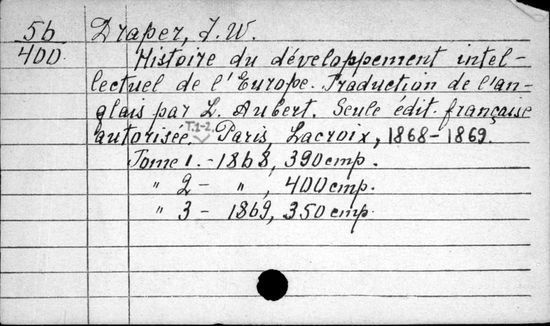 56 Draper, J. W.
400. Histoire du développement intel-
lectuel de l'Europe. Traduction de l'an-
glais par L. Aubert. Seule édit. française
autorisée. T.1-2. Paris, Lacroix, 1868-1869.
Tome 1. - 1868, 390 стр.
" 2 - " , 400 стр.
" 3 - 1869, 350 стр.